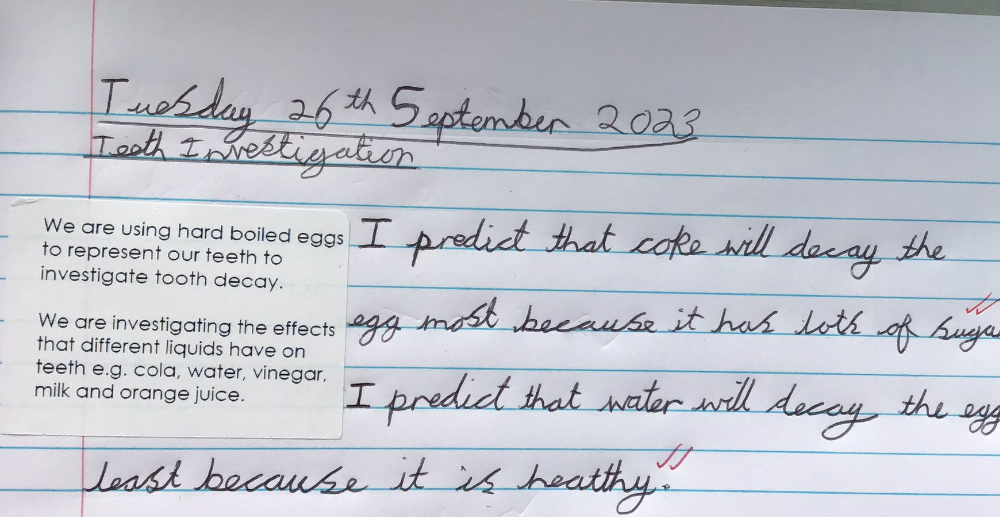 Tuesday 26th September 2023
Teeth Investigation
We are using hard boiled eggs
to represent our teeth to
investigate tooth decay.
We are investigating the effects
that different liquids have on
teeth e.g. cola, water, vinegar,
milk and orange juice.
I predict that coke will decay the
egg most because it has lots of sugar
I predict that water will decay the egg
least because it is healthy.